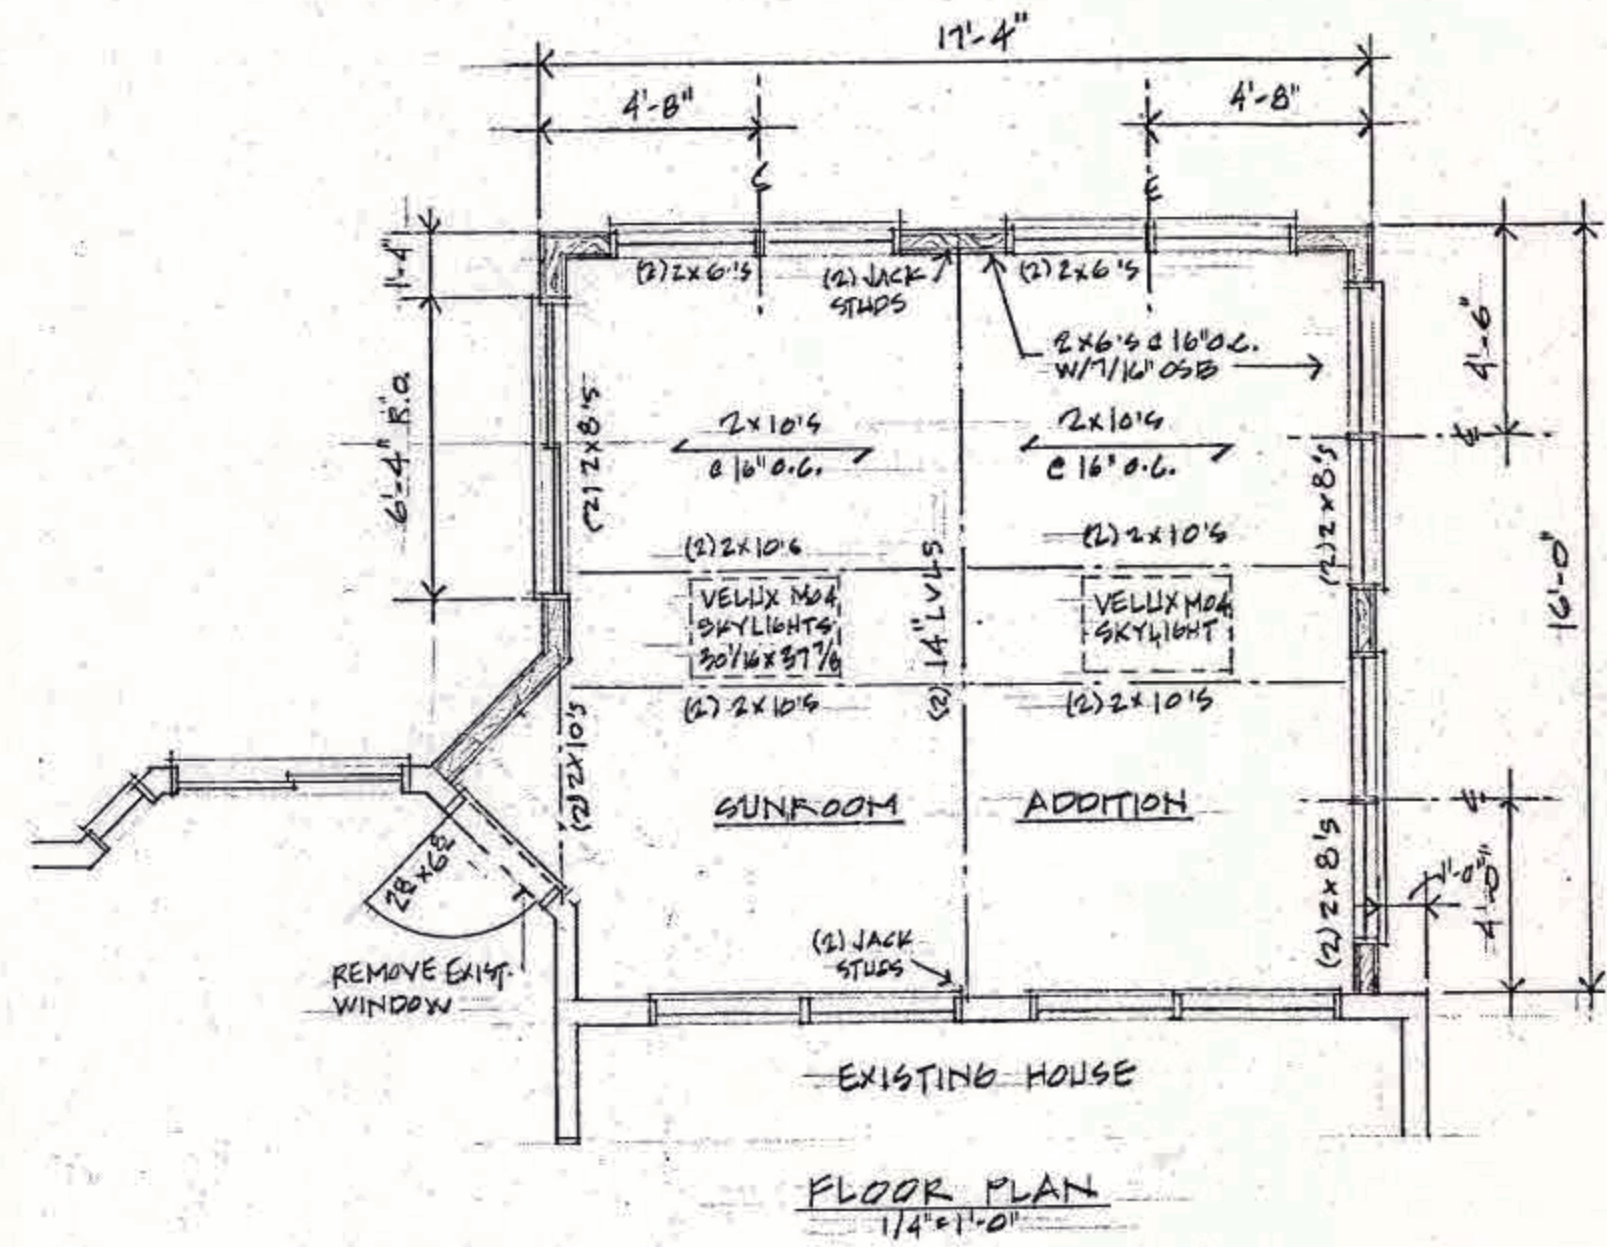 17'-4"
4'-8"
4'-8"
1'-4"
(2) 2x6'S
(2) JACK
STUDS
(2) 2x6'S
2x6'S @ 16" O.C.
W/7/16" OSB
4'-6"
6'-4" R.O.
(2) 2x8'S
2x10'S
@ 16" O.C.
2x10'S
@ 16" O.C.
(2) 2x8'S
(2) 2x10'S
(2) 2x10'S
VELUX M04
SKYLIGHTS
30 1/16 x 37 7/8
(2) 14" LVLS
VELUX M04
SKYLIGHT
16'-0"
(2) 2x10'S
(2) 2x10'S
(2) 2x10'S
SUNROOM ADDITION
28 x 68
(2) 2x8'S
1'-0"
4'-0"
(2) JACK
STUDS
REMOVE EXIST.
WINDOW
EXISTING HOUSE
FLOOR PLAN
1/4"=1'-0"